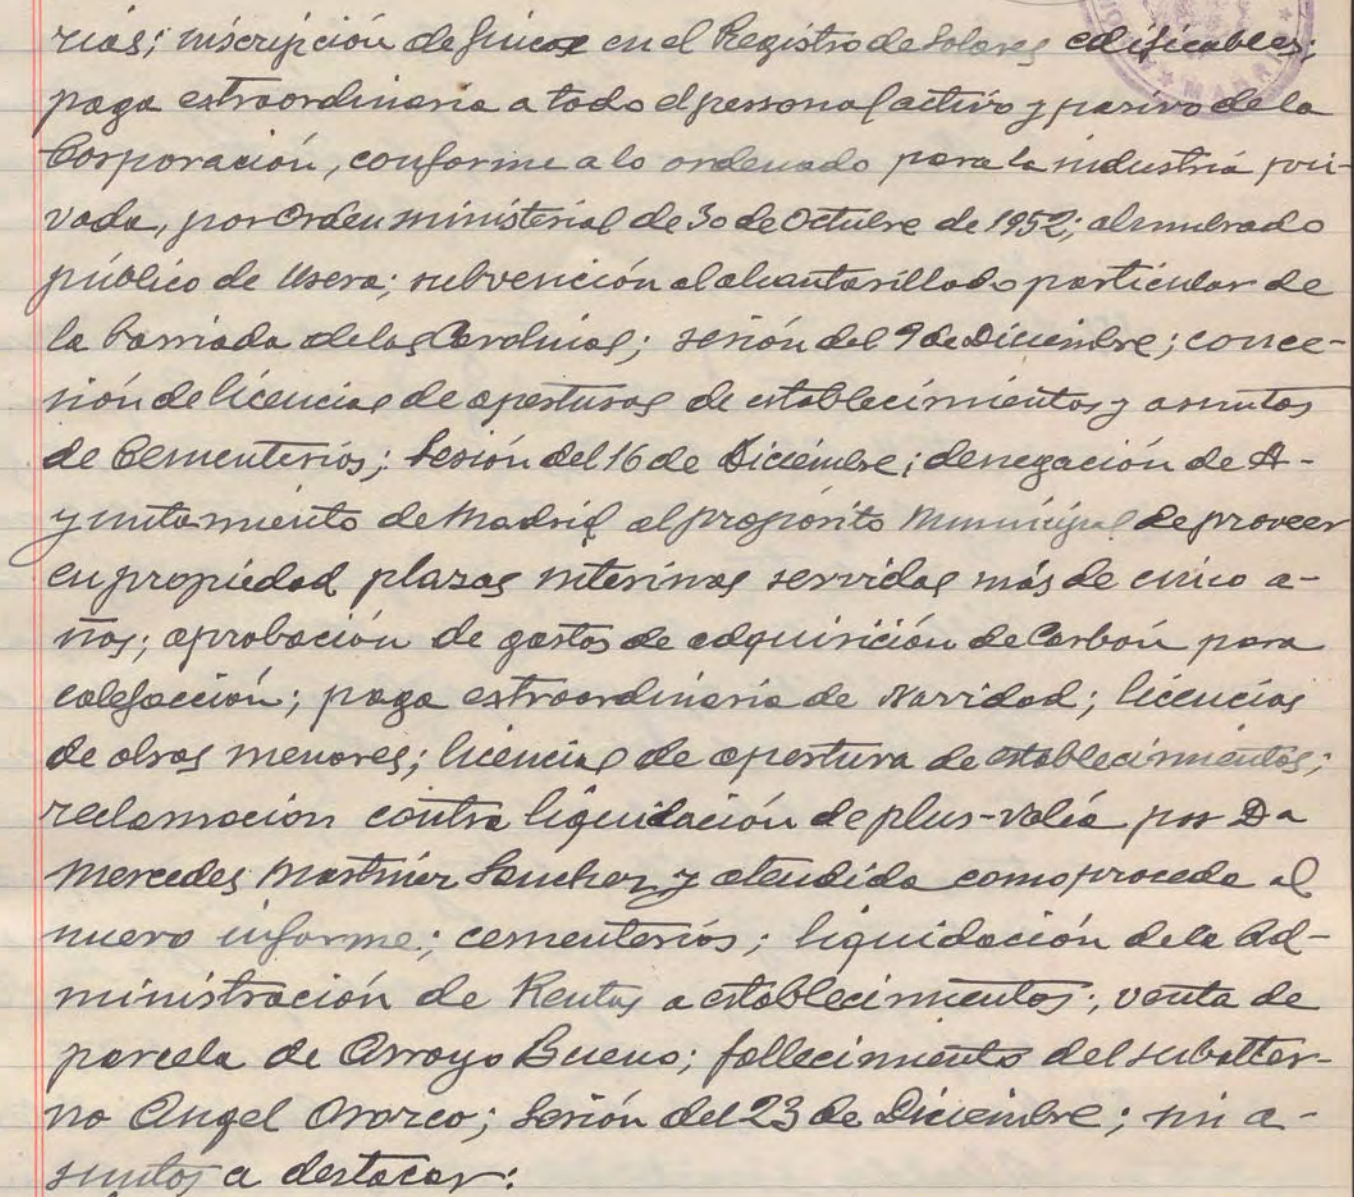 rias; inscripción de fincas en el Registro de Solares edificables;
paga extraordinaria a todo el personal activo y pasivo de la
Corporación, conforme a lo ordenado para la industria pri-
vada, por Orden ministerial de 30 de Octubre de 1952; alumbrado
público de Usera; subvención al alcantarillado particular de
la barriada de las Carolinas; sesión del 9 de Diciembre; conce-
sión de licencias de aperturas de establecimientos y asuntos
de Cementerios; Sesión del 16 de Diciembre; denegación de A-
yuntamiento de Madrid al propósito Municipal de proveer
en propiedad plazas interinas servidas más de cinco a-
ños; aprobación de gastos de adquisición de Carbón para
calefacción; paga extraordinaria de Navidad; licencias
de obras menores; licencias de apertura de establecimientos;
reclamacion contra liquidación de plus-valía por Da
Mercedes Martinez Sanchez y atendida como procede al
nuevo informe; cementerios; liquidación de la Ad-
ministración de Rentas a establecimientos; venta de
parcela de Arroyo Bueno; fallecimiento del subalter-
no Angel Orozco; Sesión del 23 de Diciembre; sin a-
suntos a destacar: